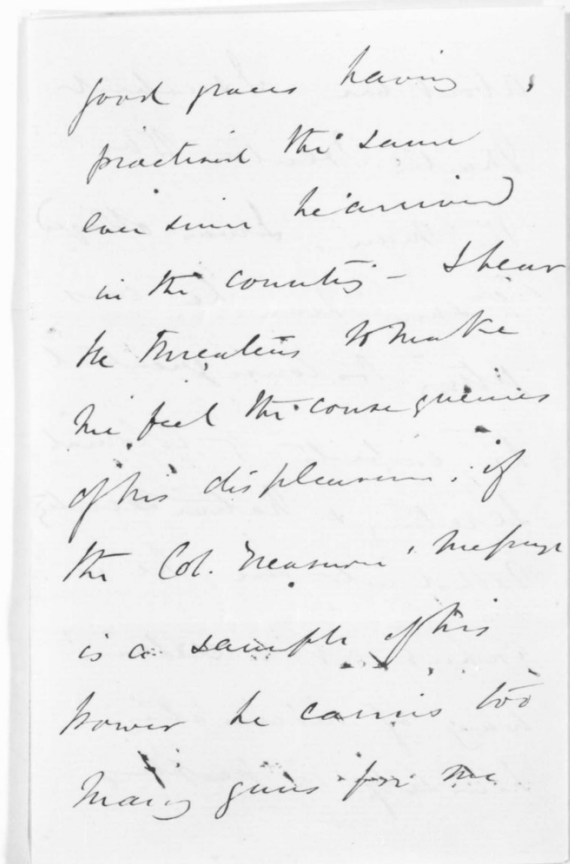 good graces having
practised the same
ever since he arrived
in the country - I hear
he threatens to make
me feel the consequences
of his displeasure, if
the Col. Treasurer's message
is a sample of his
power he carries too
many guns for me